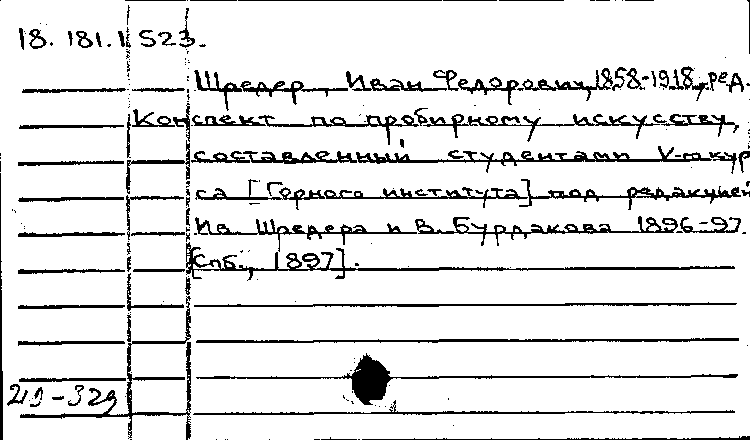 18. 181.1. S23.
Шредер, Иван Федорович, 1858-1918, ред.
Конспект по пробирному искусству,
составленный студентами V-го кур
са [Горного института] под редакцией
Ив. Шредера и В. Бурдакова 1896-97.
[Спб., 1897].
219-329